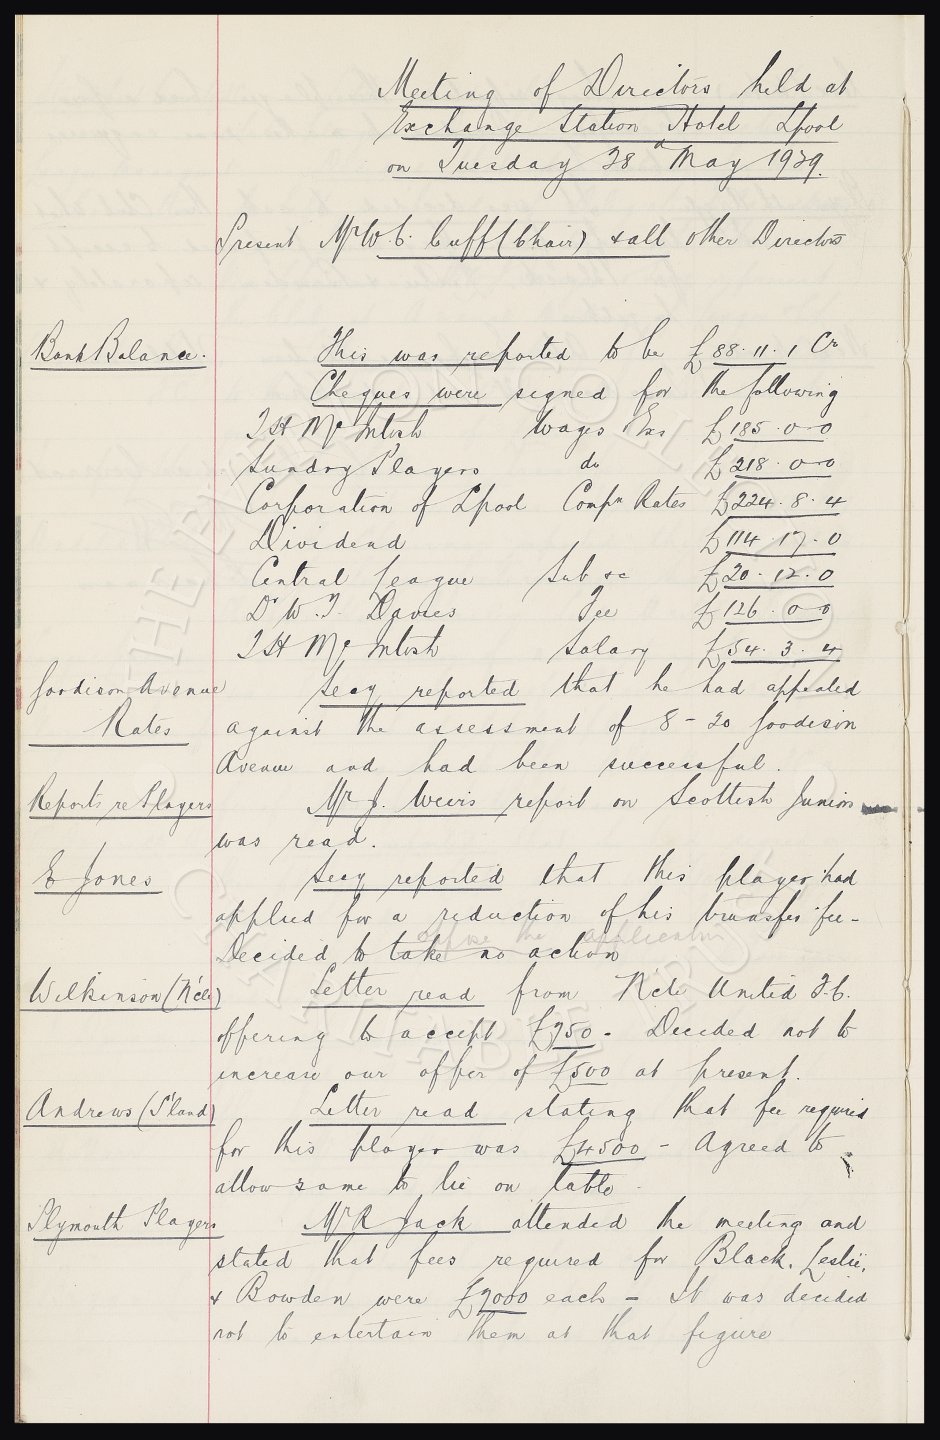 Meeting of Directors held at
Exchange Station Hotel Lpool
on Tuesday 28th May 1929.
Present Mr W. C. Cuff (Chair) & all other Directors
Bank Balance. This was reported to be £88.11.1 Cr
Cheques were signed for the following
T H McIntosh Wages Exs £185.0.0
Sundry Players do £218.0.0
Corporation of Lpool Compn Rates £224.8.4
Dividend £114.17.0
Central League Sub &c £20.12.0
Dr W. T. Davies Fee £126.0.0
T H McIntosh Salary £54.3.4
Goodison Avenue Secy reported that he had appealed
Rates against the assessment of 8-20 Goodison
Avenue and had been successful.
Reports re Players Mr J. Weirs report on Scottish Juniors
was read.
E Jones Secy reported that this player had
applied for a reduction of his transfer fee -
oppose the application
Decided to take no action
Wilkinson (N'cle) Letter read from N'cle United F.C.
offering to accept £750 - Decided not to
increase our offer of £500 at present.
Andrews (S'land) Letter read stating that fee required
for this player was £4500 - Agreed to
allow same to lie on table.
Plymouth Players Mr R Jack attended the meeting and
stated that fees required for Black, Leslie,
& Bowden were £7000 each - It was decided
not to entertain them at that figure